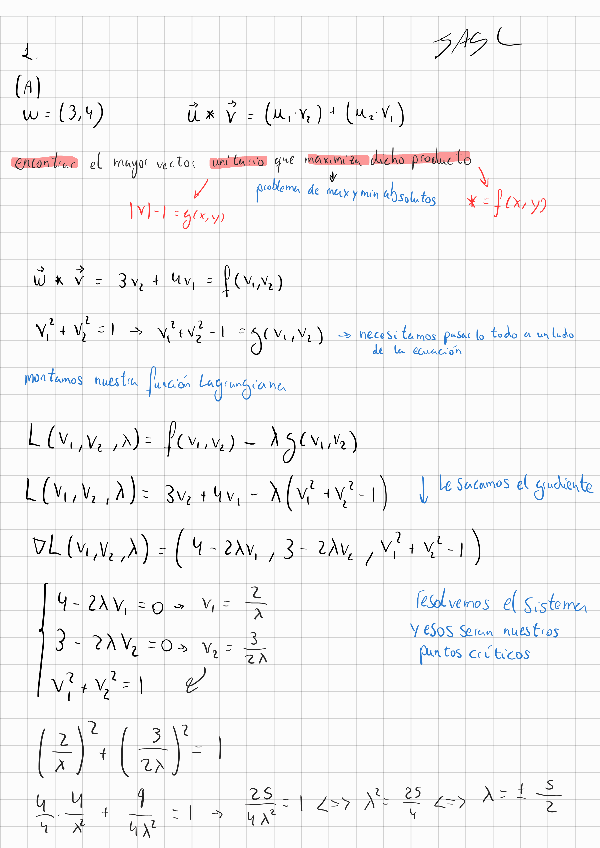 SASL
1
(A)
w = (3,4) u⃗ * v⃗ = (u₁·v₂) + (u₂·v₁)
encontrar el mayor vector unitario que maximiza dicho producto
problema de max y min absolutos
|v|-1 = g(x,y) * = f(x,y)
w⃗ * v⃗ = 3v₂ + 4v₁ = f(v₁,v₂)
v₁² + v₂² = 1 → v₁² + v₂² - 1 = g(v₁,v₂) → necesitamos pasarlo todo a un lado
de la ecuación
montamos nuestra función Lagrangiana
L(v₁,v₂,λ) = f(v₁,v₂) - λg(v₁,v₂)
L(v₁,v₂,λ) = 3v₂ + 4v₁ - λ(v₁² + v₂² - 1) ↓ Le sacamos el gradiente
∇L(v₁,v₂,λ) = (4 - 2λv₁, 3 - 2λv₂, v₁² + v₂² - 1)
4 - 2λv₁ = 0 → v₁ = 2/λ resolvemos el sistema
3 - 2λv₂ = 0 → v₂ = 3/2λ y esos seran nuestros
v₁² + v₂² = 1 puntos críticos
(2/λ)² + (3/2λ)² = 1
4/4 · 4/λ² + 9/4λ² = 1 → 25/4λ² = 1 <=> λ² = 25/4 <=> λ = ± 5/2